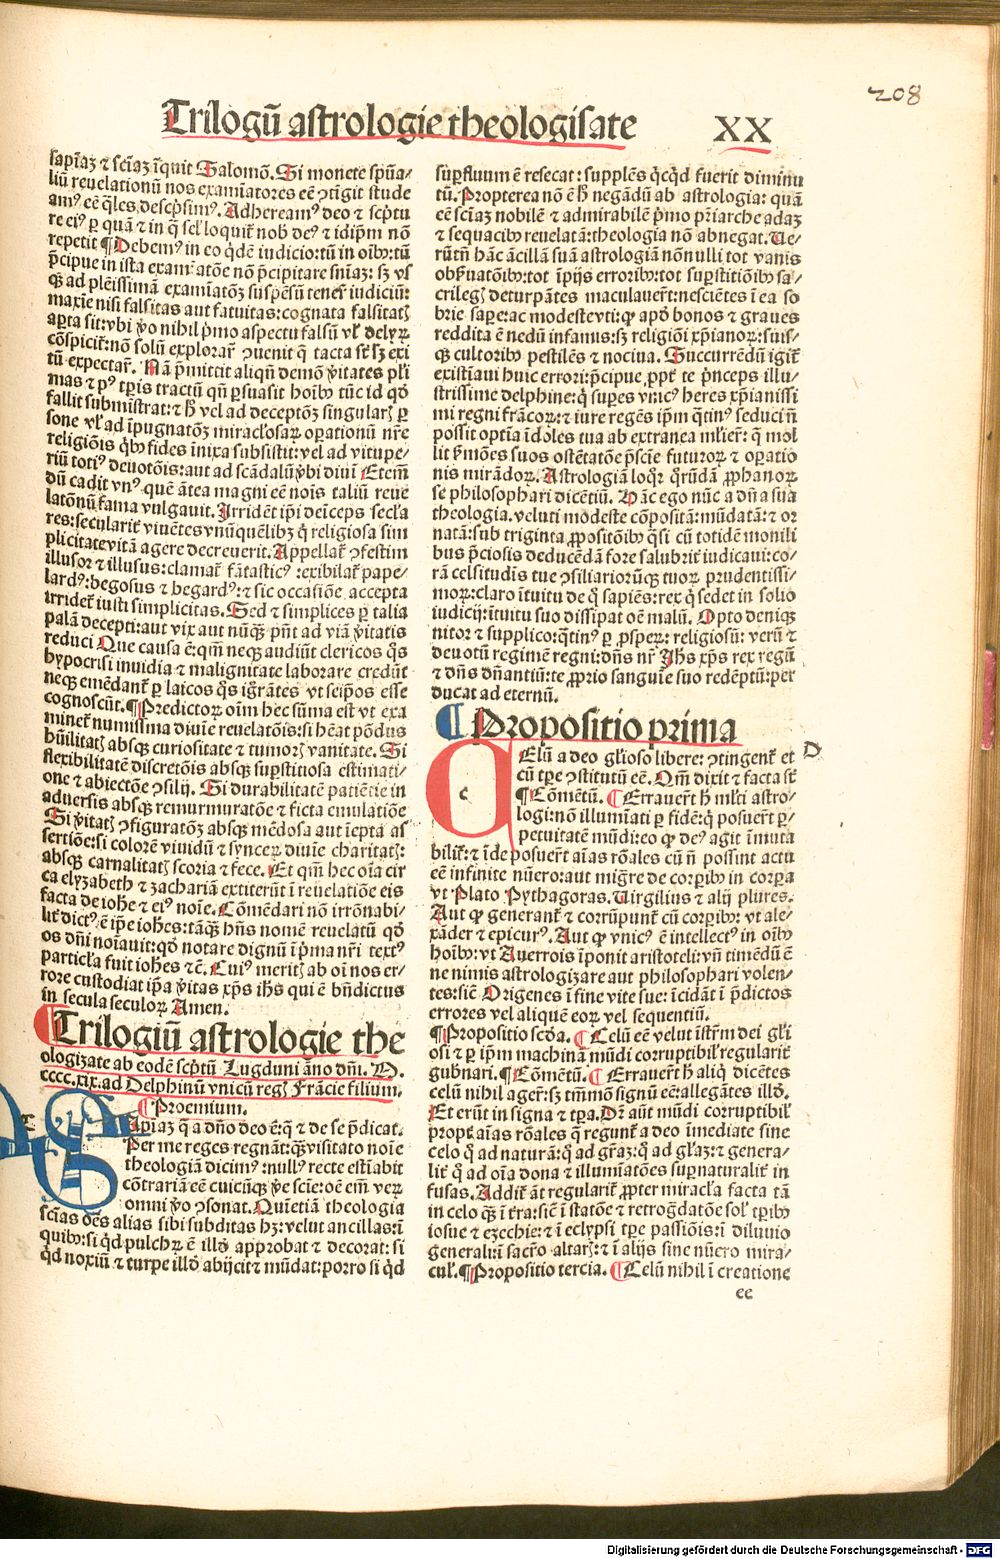 208
Trilogiū astrologie theologisate XX
sapiāz ⁊ sciāz īquit Salomō. Si monete spūa⸗
liū reuelationū nos examīatores eē ↄtigit stude
amꝰ eē q̄les descp̄simꝰ. Adhereamꝰ deo ⁊ scp̄tu
re eiꝰ ꝑ quā ⁊ in q̄ sel̓ loquit̄ nob̓ deꝰ ⁊ idip̄m nō
repetit ¶ Debemꝰ in eo q̇dē iudicio: tū in oībꝫ: tū
p̄cipue in ista examīatōe nō p̄cipitare sniāz: sꝫ vsꝫ
qꝫ ad pleīssimā examīatōꝫ suspēsū tener̄ iudiciū:
maxīe nisi falsitas aut fatuitas: cognata falsitatꝭ
aꝑta sit: vbi ꝟo nihil pͥmo aspectu falsū vl̓ delyꝝ
cōspicit̄: nō solū explorar̄ ↄuenit q̄ tacta st̄ sꝫ exi
tū expectar̄. Nā ꝑmittit aliqn̄ demō ꝟitates pl̓i
mas ⁊ pꝰ tꝑis tractū qn̄ ꝑsuasit hoībꝫ tūc id qd̓
fallit submīstrat: ⁊ h̓ vel ad deceptōꝫ singularꝭ ꝑ
sone vl̓ ad īpugnatōꝫ miracl̓osaꝝ oꝑationū nr̄e
religiōis q̇bꝫ fides īnixa subsistit: vel ad vitupe⸗
riū totiꝰ deuotōis: aut ad scādalū ꝟbi diuī Etem̄
dū cadit vnꝰ quē ātea magni eē noīs taliū reue
latōnū fama vulgauit. Irridēt ip̄i deīceps secl̓a
res: seculariť viuētes vnūquēlibꝫ q̇ religiosa sim
plicitate vitā agere decreuerit. Appellat̄ ↄfestim
illusor ⁊ illusus: clamat̄ fātasticꝰ: exibilat̄ pape⸗
lardꝰ: begosus ⁊ begardꝰ: ⁊ sic occasiōe accepta
irridet̄ iusti simplicitas. Sed ⁊ simplices ꝑ talia
palā decepti: aut vix aut nūqꝫ pn̄t ad viā ꝟitatis
reduci Que causa ē: qm̄ neqꝫ audiūt clericos q̄s
hypocrisi inuidia ⁊ malignitate laborare credūt
neqꝫ emēdant̄ ꝑ laicos q̄s ig̓rātes vt seip̄os esse
cognoscūt. ¶ Predictoꝝ oīm hec sūma est vt exa
minet̄ numissima diuīe reuelatōis: si hēat pōdus
hūilitatꝭ absqꝫ curiositate ⁊ tumorꝭ vanitate. Si
flexibilitatē discretōis absqꝫ suꝑstitiosa estimati⸗
one ⁊ abiectōe ↄsilij. Si durabilitatē patiētie in
aduersis absqꝫ remurmuratōe ⁊ ficta emulatiōe
Si ꝟitatꝭ ↄfiguratōꝫ absqꝫ mēdosa aut īepta as⸗
sertiōe: si colorē viuidū ⁊ synceꝝ diuīe charitatꝭ:
absqꝫ carnalitatꝭ scoria ⁊ fece. Et qm̄ hec oīa cir
ca elyzabeth ⁊ zachariā extiterūt ī reuelatiōe eis
facta de ioh̄e ⁊ eiꝰ noīe. Cōmēdari nō irrōnabi⸗
liť dictꝰ ē ip̄e ioh̄es: tāqꝫ hn̄s nomē reuelatū qd̓
os dn̄i noīauit: qd̓ notare dignū ip̄ma nr̄i textꝰ
particl̓a fuit ioh̄es ⁊c̄. Cuiꝰ meritꝭ ab oī nos er⸗
rore custodiat ip̄a ꝟitas xp̄s ih̄s qui ē bn̄dictus
in secula seculoꝝ Amen.
Trilogiū astrologie the
ologizate ab eodē scp̄tū Lugduni āno dn̄i. M.
cccc.xix. ad Delphinū vnicū regꝭ Frācie filium.
¶ Proemium.
Sapiāz q̄ a dn̄o deo ē: q̄ ⁊ de se p̄dicat.
Per me reges regnāt: qꝫ vsitato noīe
theologiā dicimꝰ: nullꝰ recte estīabit
cōtrariā eē cuicūqꝫ ꝟe scīe: oē em̄ veꝝ
omni ꝟo ↄsonat. Quietiā theologia
scīas oēs alias sibi subditas hꝫ: velut ancillas: ī
quibꝫ: si qd̓ pulchꝝ ē illd̓ approbat ⁊ decorat: si
qd̓ noxiū ⁊ turpe illd̓ abijcit ⁊ mūdat: porro si qd̓
suꝑfluum ē resecat: supplēs qcqd̓ fuerit diminu
tū. Propterea nō ē h̓ negādū ab astrologia: quā
eē sciāz nobilē ⁊ admirabilē pͥmo pr̄iarche adaz
⁊ sequacibꝫ reuelatā: theologia nō abnegat. Ue⸗
rūtn̄ hāc ācillā suā astrologiā nōnulli tot vanis
obẜuatōībꝫ: tot īpijs erroribꝫ: tot suꝑstitiōibꝫ sa⸗
crilegꝭ deturpātes maculauer̄t: nesciētes ī ea so
brie saꝑe: ac modeste vti: qꝙ apd̓ bonos ⁊ graues
reddita ē nedū infamis: sꝫ religiōi xp̄ianoꝝ: suis⸗
qꝫ cultoribꝫ pestilēs ⁊ nociua. Succurrēdū igit̄
existīaui huic errori: p̄cipue, ꝓpt̄ te p̄nceps illu⸗
strissime delphine: q̇ suꝑes vnicꝰ heres xp̄ianissi
mi regni frācoꝝ: ⁊ iure regēs ip̄m q̄tinꝰ seduci n̄
possit optīa īdoles tua ab extranea ml̓ier̄: q̄ mol
lit ẜmōes suos ostētatōe p̄scīe futuroꝝ ⁊ oꝑatio
nis mirādoꝝ. Astrologiā loqͦr q̄rūdā ꝓphanoꝝ
se philosophari dicētiū. Hāc ego nūc a dn̄a sua
theologia. veluti modeste cōpositā: mūdatā: ⁊ or
natā: sub triginta ꝓpositōibꝫ q̄si cū totidē monili
bus p̄ciosis deducēdā fore salubriť iudicaui: co⸗
rā celsitudīs tue ↄsiliarioruꝫqꝫ tuoꝝ prudentissi⸗
moꝝ: claro ītuitu de q̇ sapiēs: rex q̇ sedet in solio
iudicij: ītuitu suo dissipat oē malū. Opto deniqꝫ
nitor ⁊ supplico: q̄tinꝰ ꝑ ꝓspeꝝ: religiosū: verū ⁊
deuotū regimē regni: dn̄s nr̄ Ih̄s xp̄s rex regū
⁊ dn̄s dn̄antiū: te ꝓprio sanguīe suo redēptū: per
ducat ad eternū.
¶ Propositio prima
D
CElū a deo gl̓ioso libere: ↄtingent̄ et
cū tꝑe ↄstitutū eē. Qm̄ dixit ⁊ facta st̄
¶ Cōmētū. ¶ Errauer̄t h̓ ml̓ti astro⸗
logi: nō illumīati ꝑ fidē: q̇ posuer̄t ꝑ⸗
petuitatē mūdi: eo ꝙ deꝰ agit īmuta
biliť: ⁊ īde posuer̄t aīas rōales cū n̄ possint actu
eē infinite nūero: aut migr̄e de corꝑibꝫ in corꝑa
vt Plato Pythagoras. Uirgilius ⁊ alij plures.
Aut ꝙ generant̄ ⁊ corrūpunt̄ cū corꝑibꝫ: vt ale⸗
xāder ⁊ epicurꝰ. Aut ꝙ vnicꝰ ē intellectꝰ in oībꝫ
hoībꝫ: vt Auerrois īponit aristoteli: vn̄ timēdū ē
ne nimis astrologizare aut philosophari volen⸗
tes: siē Origenes ī fine vite sue: īcidāt ī p̄dictos
errores vel aliquē eoꝝ vel sequentiū.
¶ Propositio scd̓a. ¶ Celū eē velut īstr̄m dei gl̓i
osi ⁊ ꝑ ip̄m machinā mūdi corruptibil̓ regulariť
gubnari. ¶ Cōmētū. ¶ Errauer̄t h̓ aliq̇ dicētes
celū nihil ager̄: sꝫ tm̄mō signū eē: allegātes illd̓.
Et erūt in signa ⁊ tꝑa. Dr̄ aūt mūdi corruptibil̓
propt̄ aīas rōales q̄ regunt̄ a deo īmediate sine
celo q̄ ad naturā: q̄ ad gr̄az: q̄ ad gl̓az: ⁊ genera⸗
liť q̄ ad oīa dona ⁊ illumīatōes suꝑnaturaliť in
fusas. Addit̄ āt regulariť ꝓpter miracl̓a facta tā
in celo qꝫ ī tr̄a: siē ī statōe ⁊ retrog̓datōe sol̓ tꝑibꝫ
iosue ⁊ ezechie: ⁊ ī eclypsi tꝑe passiōis: ī diluuio
generali: ī sacr̄o altarꝭ: ⁊ ī alijs sine nūero mira⸗
cul̓. ¶ Propositio tercia. ¶ Celū nihil ī creatione
ee
Digitalisierung gefördert durch die Deutsche Forschungsgemeinschaft - DFG